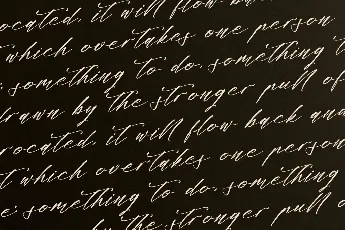 ocated, it will flow back
which overtakes one person
something to do. something t
drawn by the stronger pull of
rocated, it will flow back and
t which overtakes one person
e something to do. something
by the stronger pull o